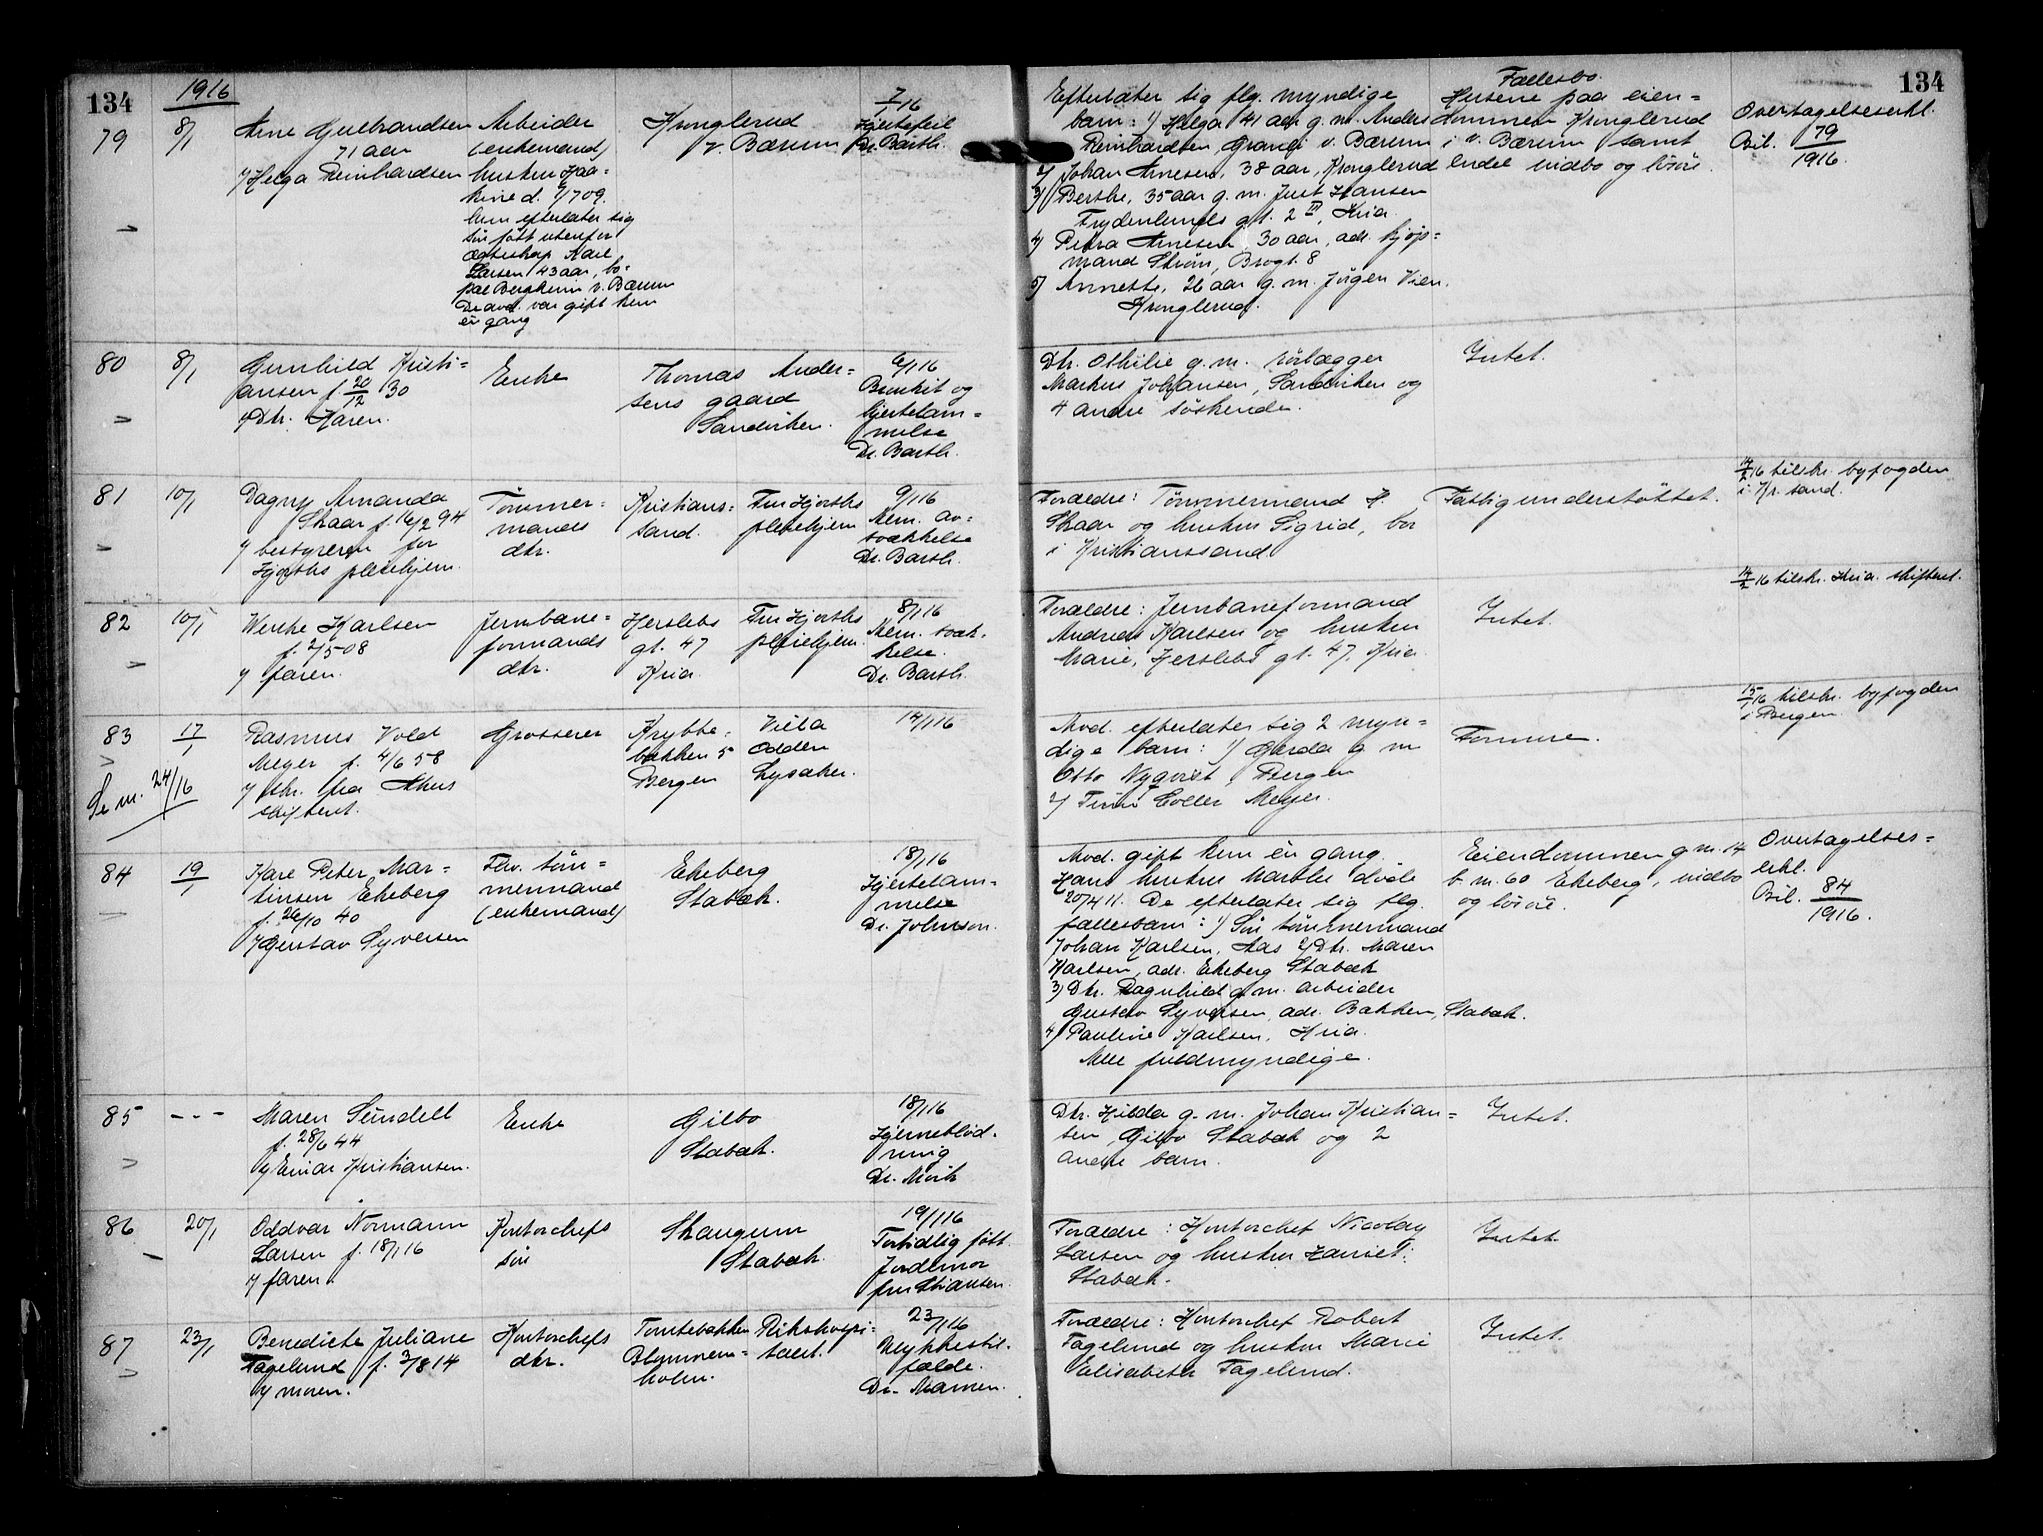 134
1916
79
8/1
Arne Gulbrandsen
71 aar
v/ Helga Reinhardsen
Arbeider
(enkemand)
hustru Haa=
kine d. 1/7 09.
hun efterlater sig
søn født utenfor
ægteskap Karl
Larsen 43 aar, bo-
pæl Bergheim v. Bærum
De avd. var gift kun
én gang
Kringlerud
v. Bærum
7/1 16
Hjertefeil
Dr. Barth.
80
8/1
Gunhild Kristi=
ansen f. 20/12 30
v/ Dtr. Karen.
Enke
Thomas Ander=
sens gaard
Sandviken.
6/1 16
Bronkit og
hjertelam=
melse
Dr. Barth.
81
10/1
Dagny Amanda
Skaar f. 16/2 94
v/ bestyreren for
Hjorths pleiehjem.
Tømmer=
mands
dtr.
Kristians=
sand.
Fru Hjorths
pleiehjem
9/1 16
Alm. av=
svækkelse
Dr. Barth.
82
10/1
Wenke Karlsen
f. 2/5 08
v/ faren.
Jernbane=
formands
dtr.
Herslebs
gt. 47
Kria.
Fru Hjorths
pleiehjem.
8/1 16
Alm. svæk-
kelse.
Dr. Barth.
83
17/1
Se nr. 24/16
Rasmus Vold
Meyer f. 4/6 58
v/ skr. fra Akers
skifteret.
Grosserer
Krybbe-
bakken 5
Bergen
Villa
Odden
Lysaker.
14/1 16
84
19/1
Karl Peter Mar=
tinsen Ekeberg
f. 26/10 40
v/ Gustav Syversen
Fhv. tøm=
mermand
(enkemand)
Ekeberg
Stabæk.
18/1 16
Hjertelam=
melse
Dr. Johnson.
85
- - -
Maren Sundell
f. 28/6 44
v/ Einar Kristiansen.
Enke
Gilbo
Stabæk.
18/1 16
Hjerneblød-
ning
Dr. Mørk
86
20/1
Oddvar Normann
Larsen f. 18/1 16
v/ faren.
Kontorchefs
søn
Skaugum
Stabæk.
19/1 16
Fortidlig født.
Jordmor
fru Stiansen.
87
23/1
Benedicte Juliane
Fagelund f. 3/8 14
v/ moren.
Kontorchefs
dtr.
Tomtebakken
Blommen=
holm.
Rikshospi=
talet.
23/1 16
Ulykkestil-
fælde.
Dr. Mamen.
134
Efterlater sig flg. myndige
barn: 1) Helga 41 aar g. m. Anders
Reinhardsen, Grangi v. Bærum
2) Johan Arnesen, 38 aar, Kringlerud
3) Berthe, 35 aar g. m. Just Hansen
Frydenlunds gt. 2 III, Kria.
4) Petra Arnesen, 30 aar, adr. kjøp=
mand Strøm, Brogt. 8
5) Annette, 26 aar g. m. Jørgen Vien.
Kringlerud.
Fællesbo.
Husene paa eien=
dommen Kringlerud
i v. Bærum samt
endel indbo og løsøre.
Overtagelseserkl.
Bil. 79/1916.
Dtr. Othilie g. m. rørlægger
Markus Johansen, Sandviken og
4 andre søskende.
Intet.
Forældre: Tømmermand H.
Skaar og hustru Sigrid, bor
i Kristianssand
Fattigunderstøttet.
14/2 16 tilskr. byfogden
i Kr.sand.
Forældre: Jernbaneformand
Andreas Karlsen og hustru
Marie, Herslebs gt. 47, Kria.
Intet.
14/2 16 tilskr. Kria. skifteret.
Avd. efterlater sig 2 myn=
dige barn: 1) Gerda g. m.
Otto Nyqvist, Bergen
2) Finn Coller Meyer.
Formue.
15/1 16 tilskr. byfogden
i Bergen.
Avd. gift kun én gang.
Hans hustru Marthe døde
20/4 11. De efterlater sig flg.
fællesbarn: 1) Søn tømmermand
Johan Karlsen, Aas 2) Dtr. Maren
Karlsen, adr. Ekeberg Stabæk
3) Dtr. Ragnhild g. m. arbeider
Gustav Syversen, adr. Bakken, Stabæk.
4) Pauline Karlsen, Kria.
Alle fuldmyndige.
Eiendommen g. nr. 14
b. nr. 60 Ekeberg, indbo
og løsøre.
Overtagelses=
erkl.
Bil. 84/1916.
Dtr. Hilda g. m. Johan Kristian=
sen, Gilbo Stabæk og 2
andre barn.
Intet.
Forældre: Kontorchef Nicolay
Larsen og hustru Harriet:
Stabæk.
Intet.
Forældre: Kontorchef Robert
Fagelund og hustru Marie
Elisabeth Fagelund.
Intet.